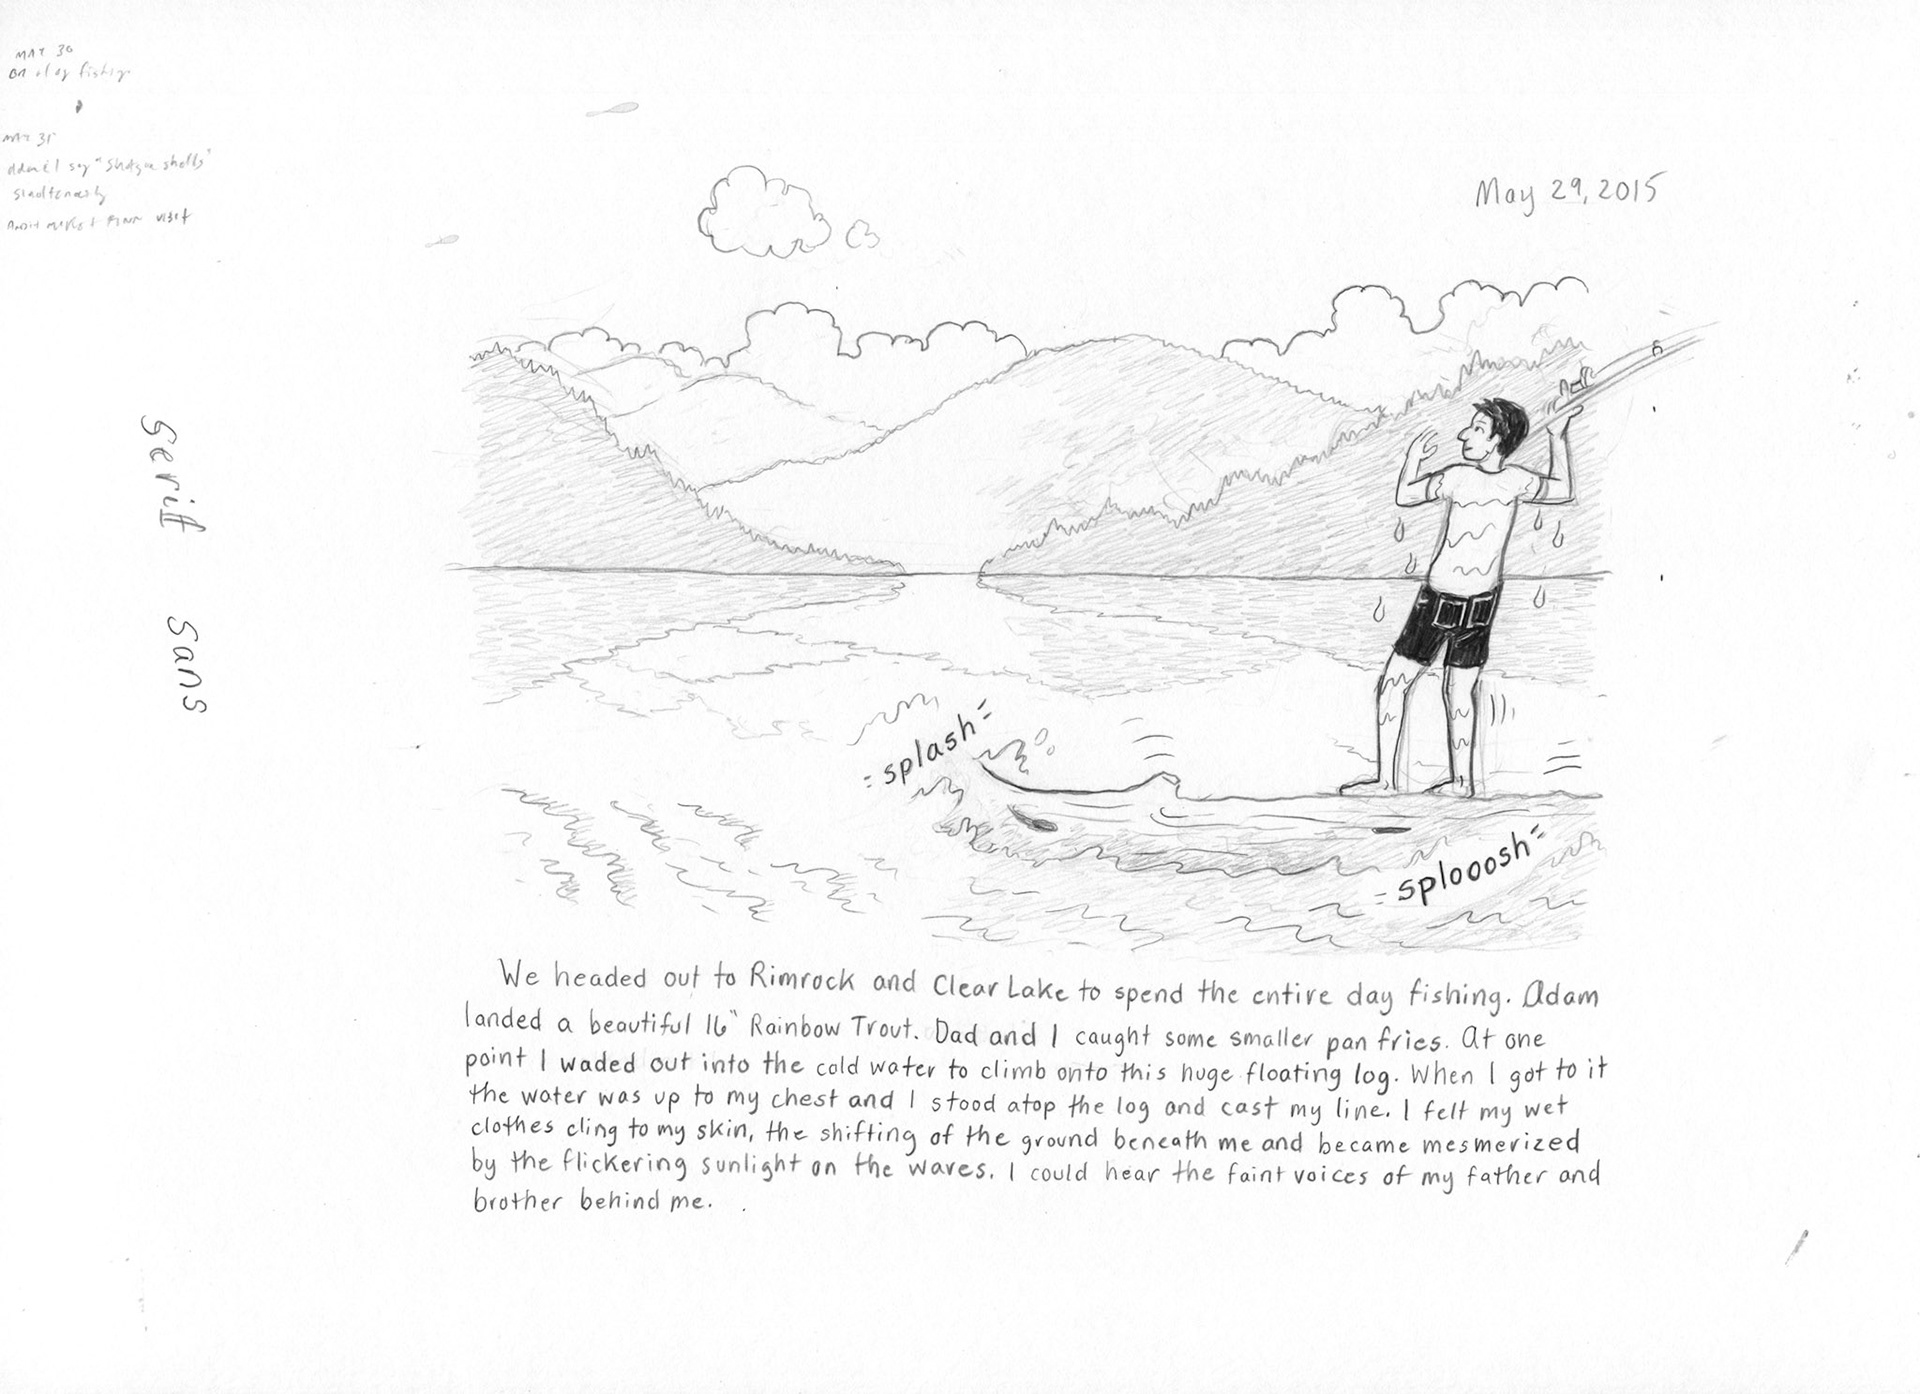 MAY 30
fishing
MAY 31
say "Shotgun shells"
May 29, 2015
Serif Sans
=splash=
=splooosh=
We headed out to Rimrock and Clear Lake to spend the entire day fishing. Adam
landed a beautiful 16" Rainbow Trout. Dad and I caught some smaller pan fries. At one
point I waded out into the cold water to climb onto this huge floating log. When I got to it
the water was up to my chest and I stood atop the log and cast my line. I felt my wet
clothes cling to my skin, the shifting of the ground beneath me and became mesmerized
by the flickering sunlight on the waves. I could hear the faint voices of my father and
brother behind me.